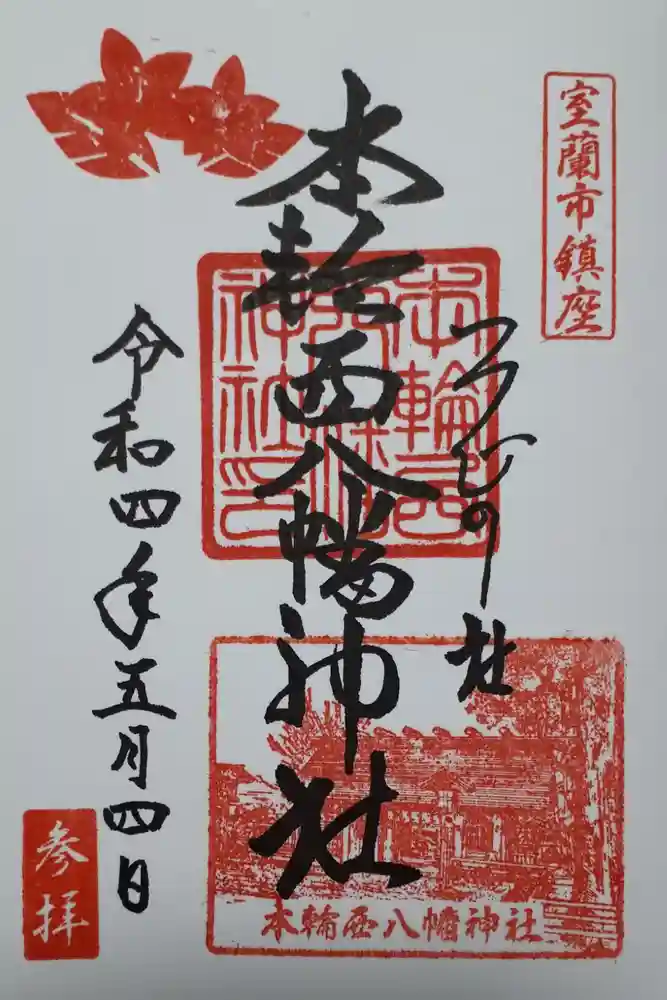 室蘭市鎮座
つつじの杜
本輪西八幡神社
本輪西
八幡
神社印
令和四年五月四日
参拝
本輪西八幡神社